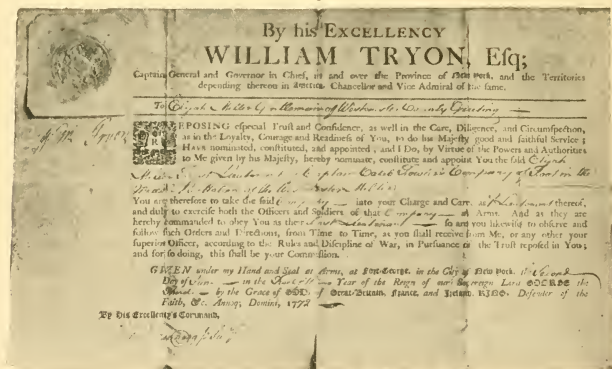 By his EXCELLENCY
WILLIAM TRYON, Esq;
Captain General and Governor in Chief, in and over the Province of New York, and the Territories
depending thereon in America, Chancellor and Vice Admiral of the same.
To Elijah Miller Gentleman of Westchester County Greeting
REPOSING especial Trust and Confidence, as well in the Care, Diligence, and Circumspection,
as in the Loyalty, Courage and Readiness of You, to do his Majesty good and faithful Service;
HAVE nominated, constituted, and appointed, and I Do, by Virtue of the Powers and Authorities
to Me given by his Majesty, hereby nominate, constitute and appoint You the said Elijah
Lieutenant Captain Caleb Company of
You are therefore to take the said Company into your Charge and Care, as Lieutenant thereof,
and duly to exercise both the Officers and Soldiers of that Company in Arms. And as they are
hereby commanded to obey You as their Lieutenant so are you likewise to observe and
follow such Orders and Directions, from Time to Time, as you shall receive from Me, or any other your
superior Officer, according to the Rules and Discipline of War, in Pursuance of the Trust reposed in You;
and for so doing, this shall be your Commission.
GIVEN under my Hand and Seal at Arms, at Fort-George, in the City of New York, the Second
Day of in the Year of the Reign of our Sovereign Lord GEORGE the
Third by the Grace of GOD, of Great-Britain, France, and Ireland, KING, Defender of the
Faith, &c. Annoq; Domini, 1772
By his Excellency's Command,